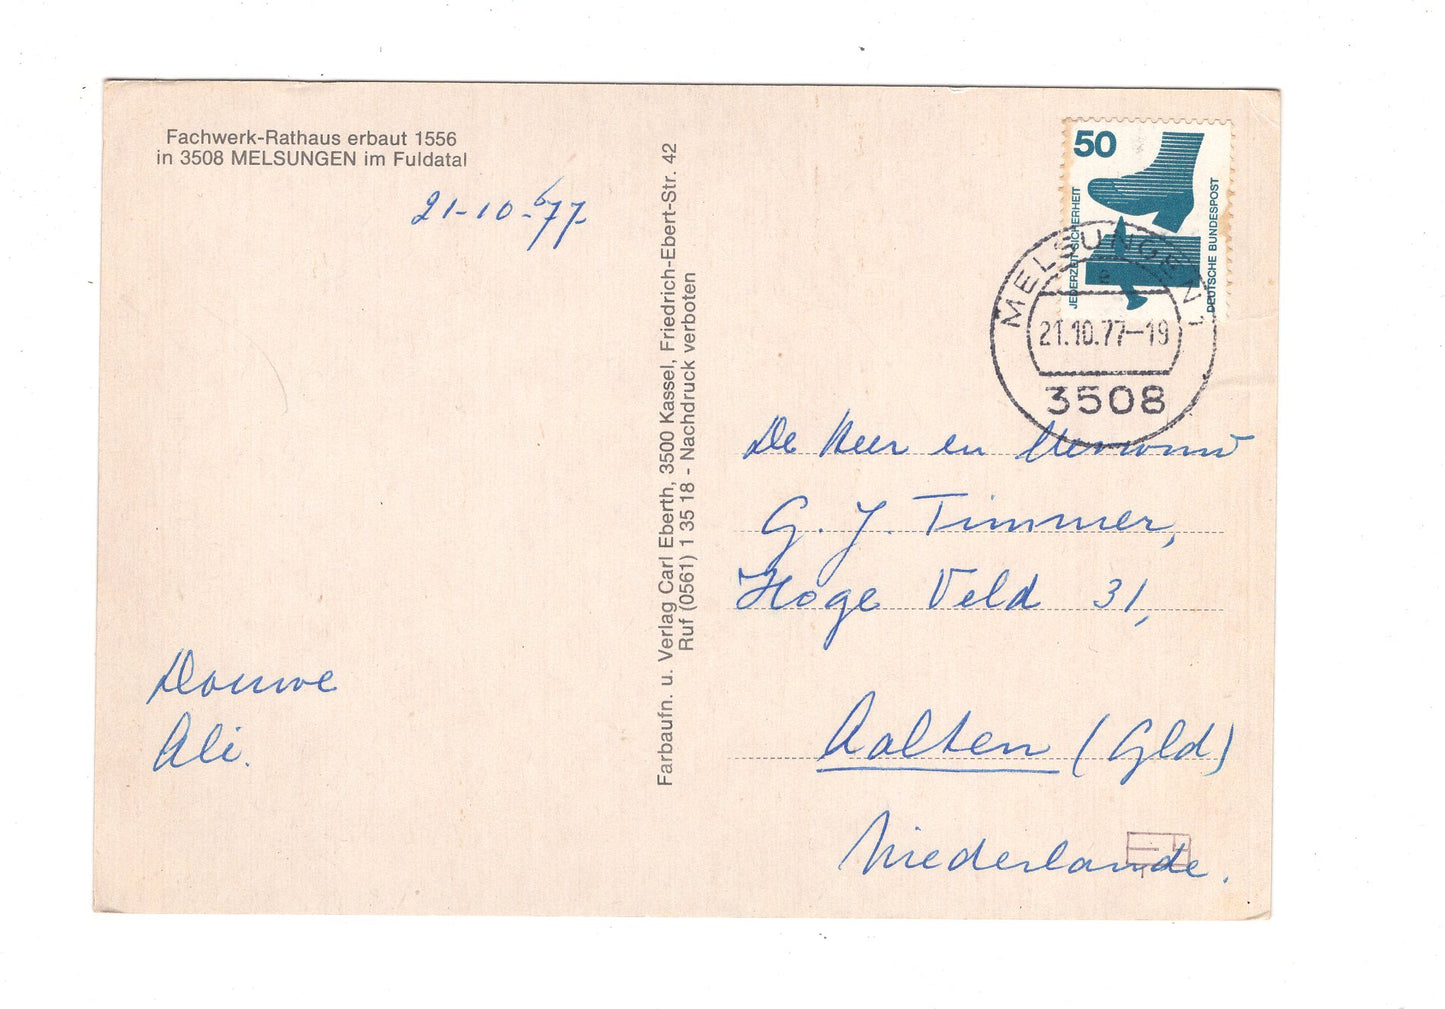 Fachwerk-Rathaus erbaut 1556
in 3508 MELSUNGEN im Fuldatal
21-10-'77-
Douwe
Ali.
Farbaufn. u. Verlag Carl Eberth, 3500 Kassel, Friedrich-Ebert-Str. 42
Ruf (0561) 1 35 18 - Nachdruck verboten
50
JEDERZEIT SICHERHEIT
DEUTSCHE BUNDESPOST
MELSUNGEN 1
e
21.10.77-19
3508
De Heer en Mevrouw
G. J. Timmer,
Hoge Veld 31,
Aalten (Gld)
Niederlande.